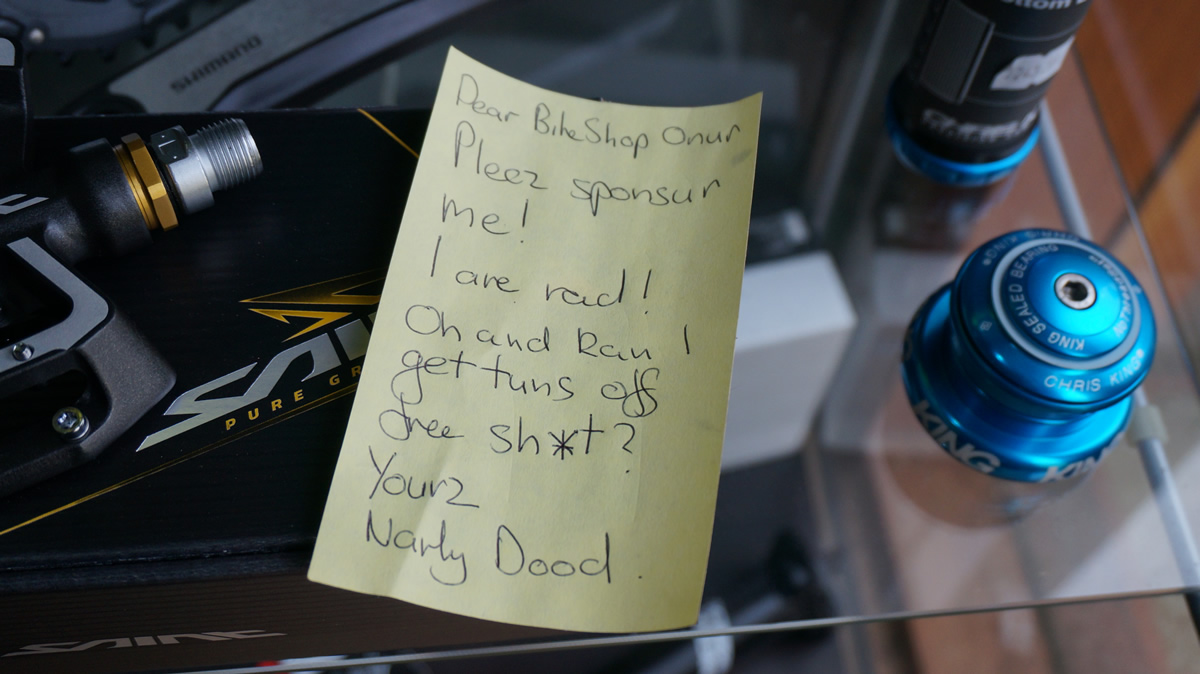 SHIMANO
Dear BikeShop Onur
Pleez sponsur
me!
I are rad!
Oh and kan I
get tuns off
free sh*t?
Yourz
Narly Dood.
SAIN
PURE GR
SAINT
KING SEALED BEARING
CHRIS KING
KING
KING